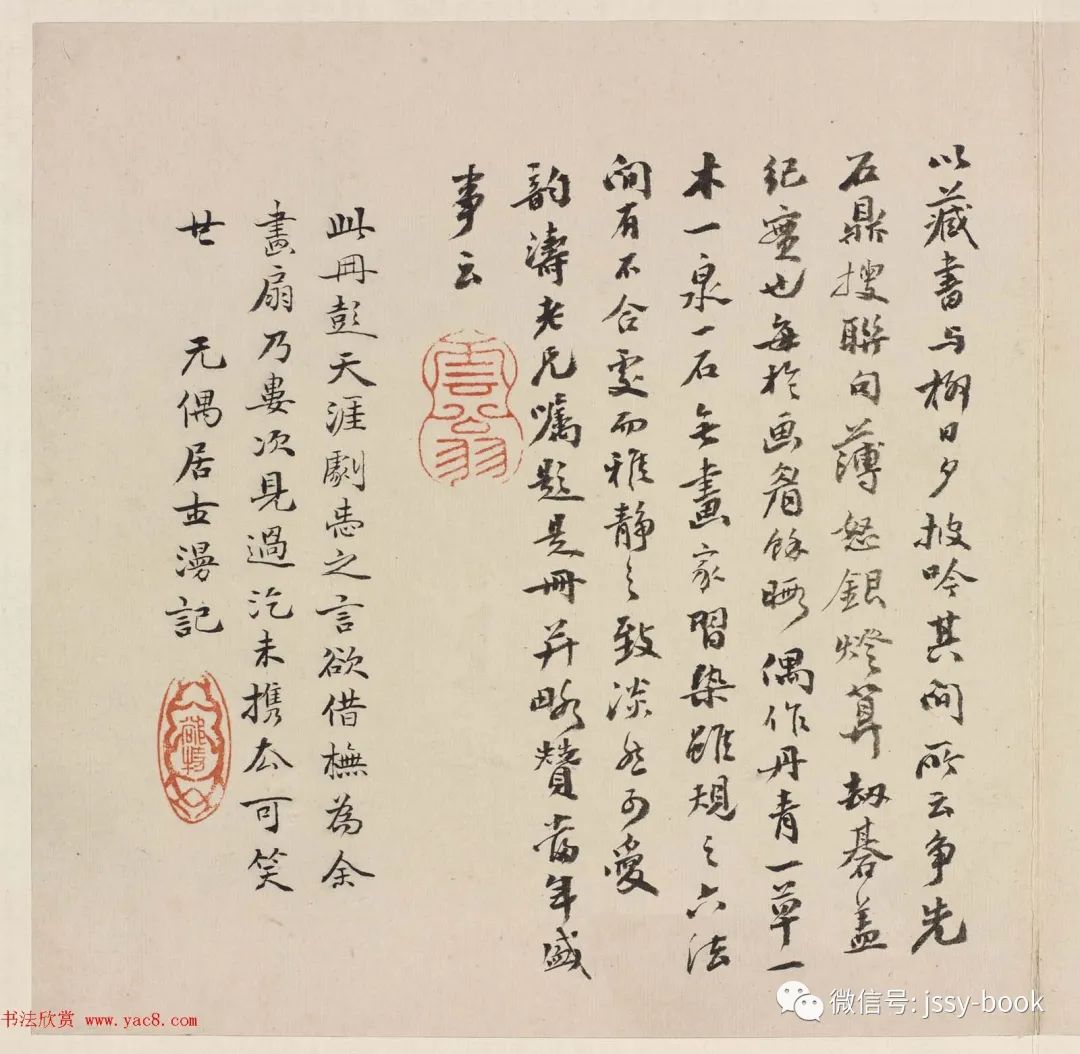 以藏書与日夕披吟其间所云争先
石鼎搜聯句薄怒銀燈算劫碁盖
纪實也每於画眉餘暇偶作丹青一草一
木一泉一石无畫家習染雖規之六法
间有不合處而雅静之致淡然可愛
韵濤老兄嘱題是冊并略贊當年盛
事云
雲翁
此冊彭天涯劇之言欲借橅為余
畫扇乃婁次見過汔未携去可笑
廿 无偶居士漫記
书法欣赏 www.yac8.com
微信号: jssy-book